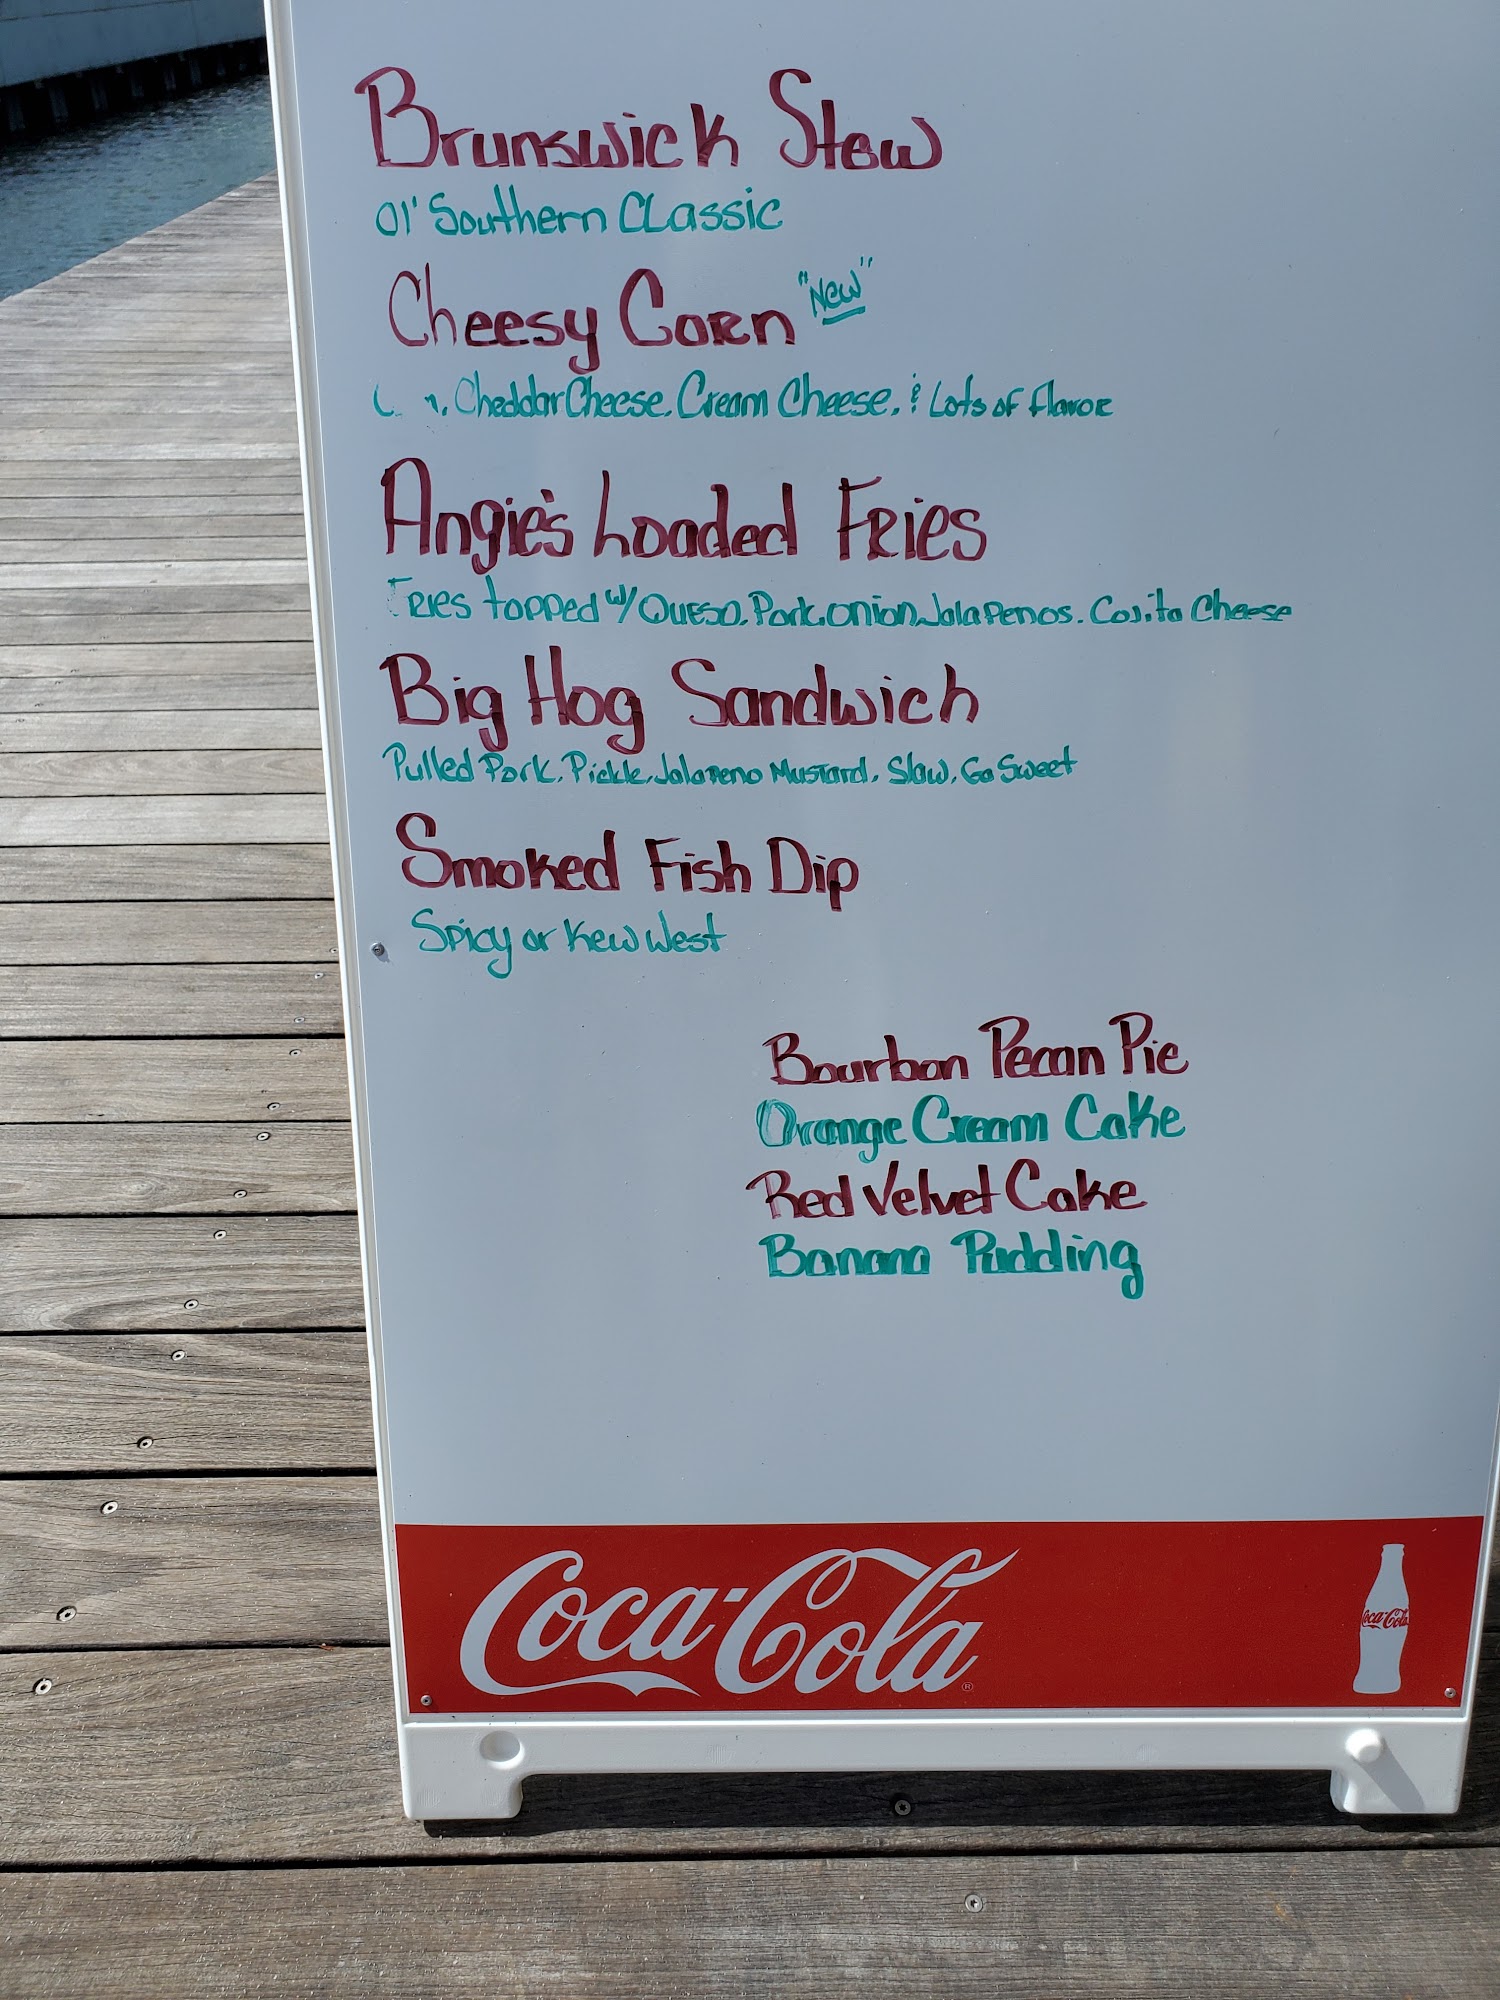 Brunswick Stew
Ol' Southern Classic
Cheesy Corn "New"
Cheddar Cheese, Cream Cheese, & Lots of Flavor
Angie's Loaded Fries
Fries topped w/ Queso, Pork, Onion, Jalapenos, Cojita Cheese
Big Hog Sandwich
Pulled Pork, Pickle, Jalapeno Mustard, Slaw, Ga Sweet
Smoked Fish Dip
Spicy or Kew West
Bourbon Pecan Pie
Orange Cream Cake
Red Velvet Cake
Banana Pudding
Coca-Cola ®
Coca-Cola